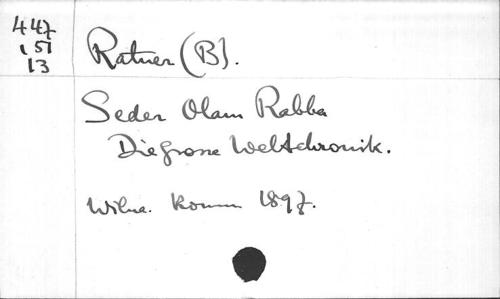 447
151
13
Ratner (B).
Seder Olam Rabba
Die grosse Weltchronik.
Wilna. Romm 1897.